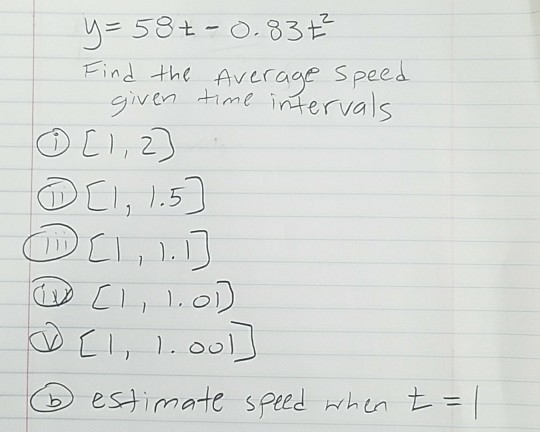 y = 58t - 0.83t²
Find the Average Speed
given time intervals
(i) [1, 2]
(ii) [1, 1.5]
(iii) [1, 1.1]
(iv) [1, 1.01]
(v) [1, 1.001]
(b) estimate speed when t = 1